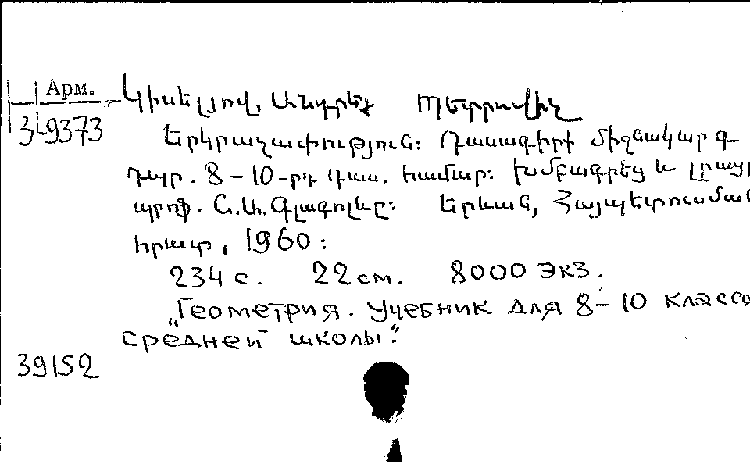 Арм.
3-9373
Կիսելյով, Անդրեյ Պետրովիչ
Երկրաչափություն: Դասագիրք միջնակարգ
դպր. 8-10-րդ դաս. համար: Խմբագրեց և լրացր
պրոֆ. Ն.Ա.Գլագոլևը: Երևան, Հայպետուսման
հրատ, 1960:
234 с. 22 см. 8000 экз.
„Геометрия. Учебник для 8-10 классо
средней школы."
39152